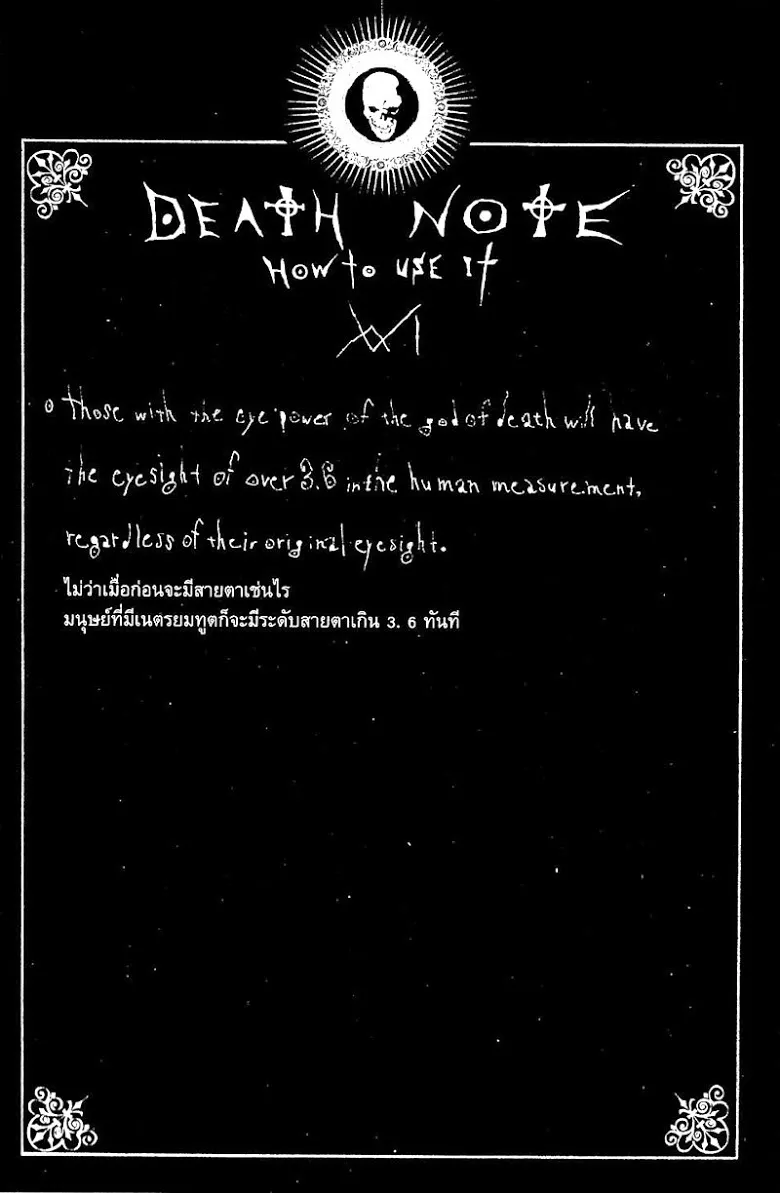 DEATH NOTE
HOW to USE It
XVI
Those with the eye power of the god of death will have
the eyesight of over 3.6 in the human measurement,
regardless of their original eyesight.
ไม่ว่าเมื่อก่อนจะมีสายตาเช่นไร
มนุษย์ที่มีเนตรยมทูตก็จะมีระดับสายตาเกิน 3. 6 ทันที